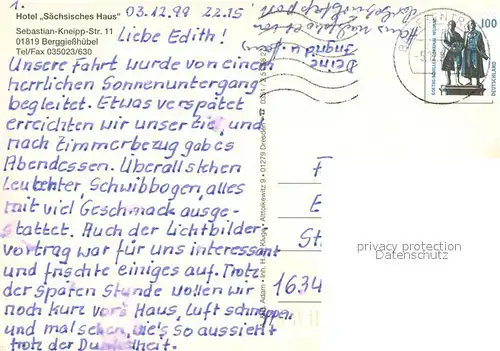 1.
Hotel „Sächsisches Haus"
Sebastian-Kneipp-Str. 11
01819 Berggießhübel
Tel/Fax 035023/630
03.12.99 22.15
Liebe Edith!
Unsere Fahrt wurde von einem
herrlichen Sonnenuntergang
begleitet. Etwas verspätet
erreichten wir unser Ziel und
nach Zimmerbezug gab es
Abendessen. Überall stehen
Leuchter, Schwibbogen, alles
mit viel Geschmack ausge-
stattet. Auch der Lichtbilder
vortrag war für uns interessant
und frischte einiges auf. Trotz
der späten Stunde wollen wir
noch kurz vors Haus, Luft schnappen
und mal sehen, wie's so aussieht
trotz der Dunkelheit.
Deine
Ingrid u.
Haus
01279 Dresden
100
DEUTSCHLAND
F
E
St
1634
privacy protection
Datenschutz